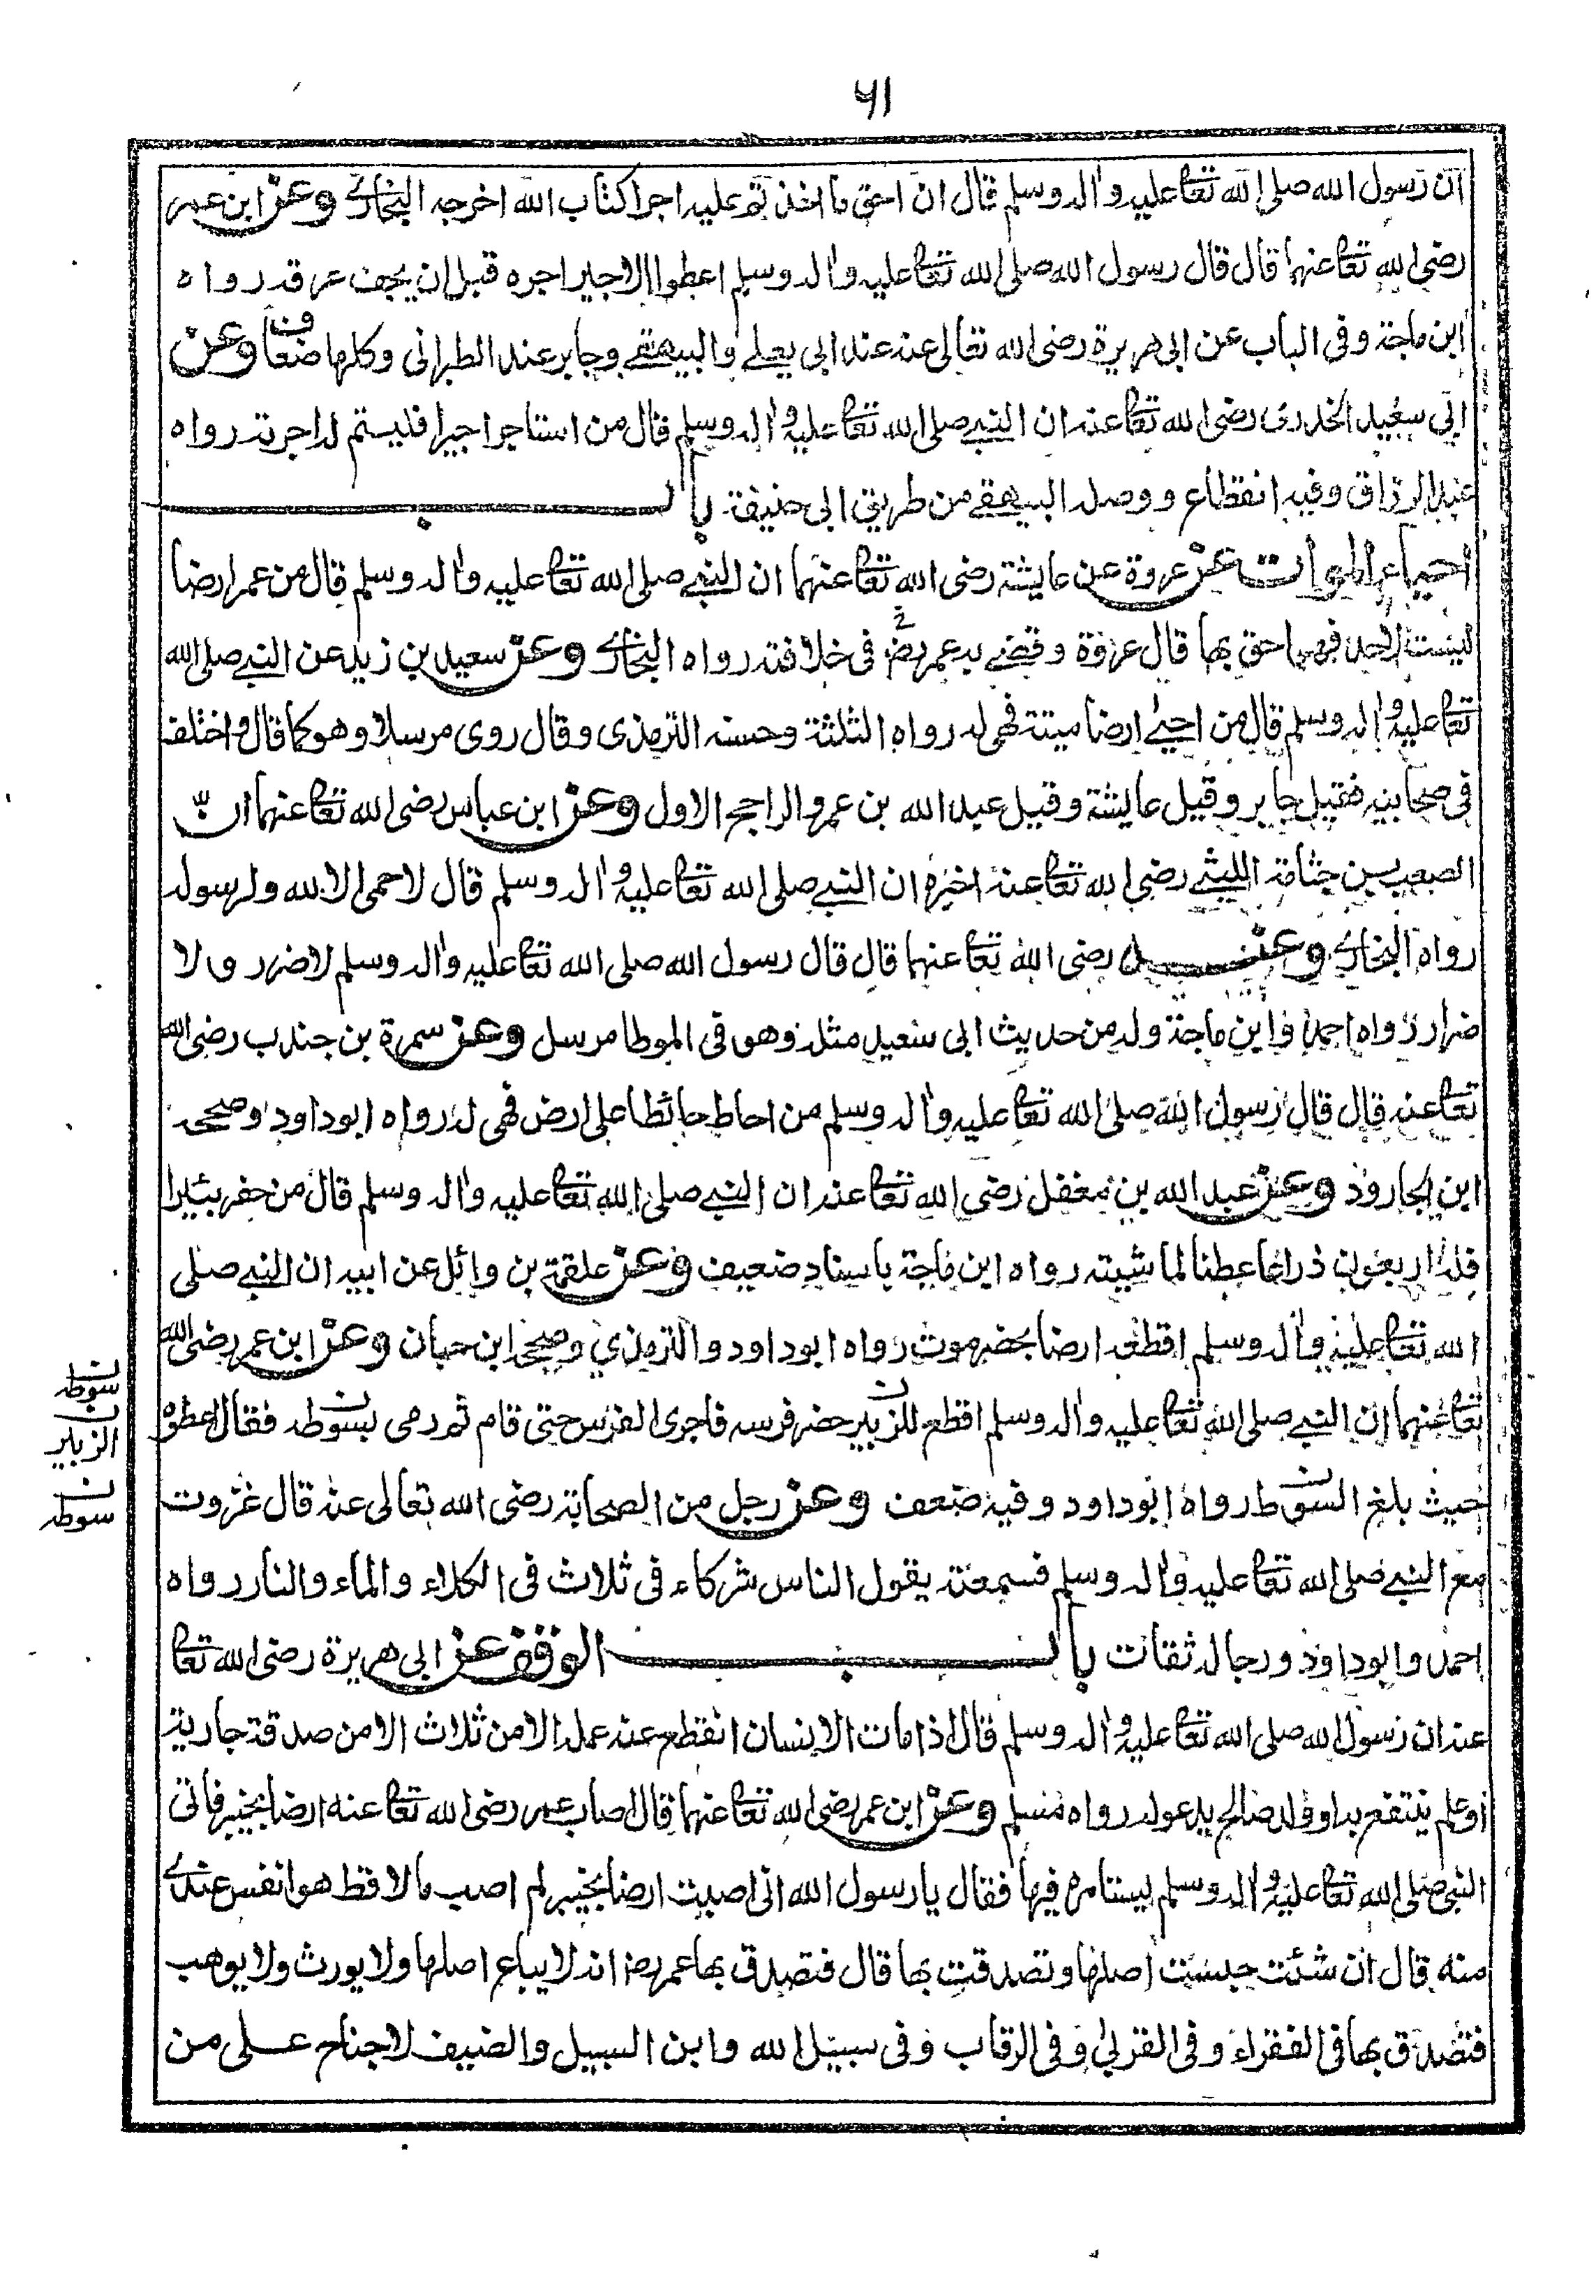 ۶۱
ان رسول الله صلى الله تعا عليه واله وسلم قال ان احق ما اخذتم عليه اجرا كتاب الله اخرجه البخارى وعن ابن عمر
رضى الله تعا عنهما قال قال رسول الله صلى الله تعا عليه واله وسلم اعطوا الاجير اجره قبل ان يجف عرقه رواه
ابن ماجة وفى الباب عن ابى هريرة رضى الله تعالى عنه عند ابى يعلے والبيهقے وجابر عند الطبرانى وكلها ضعاف وعن
ابى سعيد الخدرى رضى الله تعا عنه ان النبے صلى الله تعا عليه واله وسلم قال من استاجر اجيرا فليتم له اجرته رواه
عبد الرزاق وفيه انقطاع ووصله البيهقے من طريق ابى حنيفة باب
احياء الموات عن عروة عن عايشة رضى الله تعا عنهما ان النبے صلى الله تعا عليه واله وسلم قال من عمر ارضا
ليست لاحد فهو احق بها قال عروة وقضے به عمر رضؓ فى خلافته رواه البخارى وعن سعيد بن زيد عن النبے صلى الله
تعا عليه واله وسلم قال من احيے ارضا ميتة فهى له رواه الثلثة وحسنه الترمذى وقال روى مرسلا وهو كما قال واختلف
فى صحابيه فقيل جابر وقيل عايشة وقيل عبد الله بن عمر والراجح الاول وعن ابن عباس رضى الله تعا عنهما انّ
الصعب بن جثامة الليثے رضى الله تعا عنه اخبره ان النبے صلى الله تعا عليه واله وسلم قال لا حمى الا لله ولرسوله
رواه البخارى وعنه رضى الله تعا عنهما قال قال رسول الله صلى الله تعا عليه واله وسلم لا ضرر ولا
ضرار رواه احمد وابن ماجة وله من حديث ابى سعيد مثله وهو فى الموطا مرسل وعن سمرة بن جندب رضى الله
تعا عنه قال قال رسول الله صلى الله تعا عليه واله وسلم من احاط حائطا على ارض فهى له رواه ابوداود وصححه
ابن الجارود وعن عبد الله بن مغفل رضى الله تعا عنه ان النبے صلى الله تعا عليه واله وسلم قال من حفر بئيرا
فله اربعون ذراعا عطنا لماشيته رواه ابن ماجة باسناد ضعيف وعن علقمة بن وائل عن ابيه ان النبے صلى
الله تعا عليه واله وسلم اقطعه ارضا بحضرموت رواه ابوداود والترمذي وصححه ابن حبان وعن ابن عمر رضى الله
تعا عنهما ان النبے صلى الله تعا عليه واله وسلم اقطع للزبير حضر فرسه فاجرى الفرس حتى قام ثم رمى بسوطه فقال اعطوه
حيث بلغ السوط رواه ابوداود وفيه ضعف وعن رجل من الصحابة رضى الله تعالى عنه قال غزوت
مع النبے صلى الله تعا عليه واله وسلم فسمعته يقول الناس شركاء فى ثلاث فى الكلاء والماء والنار رواه
احمد وابوداود ورجاله ثقات باب الوقف عن ابى هريرة رضى الله تعا
عنه ان رسول الله صلى الله تعا عليه واله وسلم قال اذا مات الانسان انقطع عنه عمله الا من ثلاث الا من صدقة جارية
او علم ينتفع به او ولد صالح يدعو له رواه مسلم وعن ابن عمر رضى الله تعا عنهما قال اصاب عمر رضى الله تعا عنه ارضا بخيبر فاتى
النبى صلى الله تعا عليه واله وسلم يستامره فيها فقال يا رسول الله انى اصبت ارضا بخيبر لم اصب مالا قط هو انفس عندے
منه قال ان شئت حبست اصلها وتصدقت بها قال فتصدق بها عمر رضؓ انه لا يباع اصلها ولا يورث ولا يوهب
فتصدق بها فى الفقراء وفى القربى وفى الرقاب وفى سبيل الله وابن السبيل والضيف لا جناح على من
ن سوطه
ن الزبير
ن سوطه